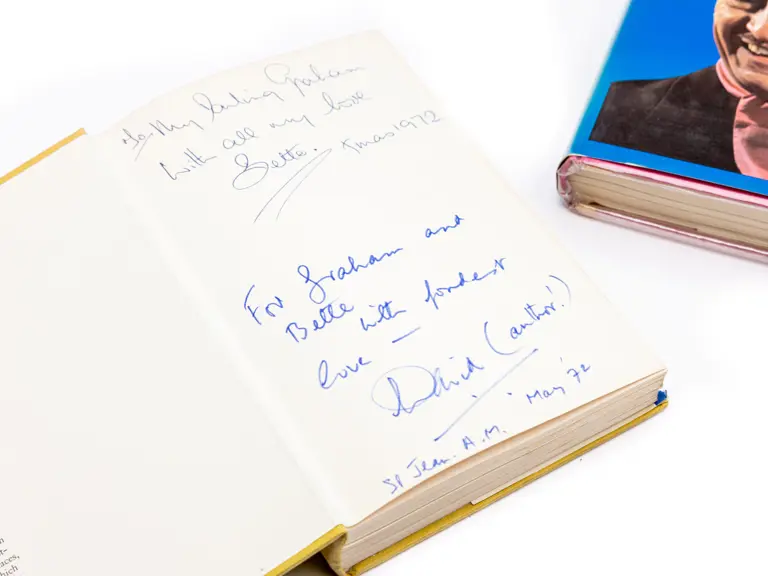 To My darling Graham
With all my love
Bette. Xmas 1972
For Graham and
Bette with fondest
love —
David (author!)
St Jean. A.M. May '72
aces,
which